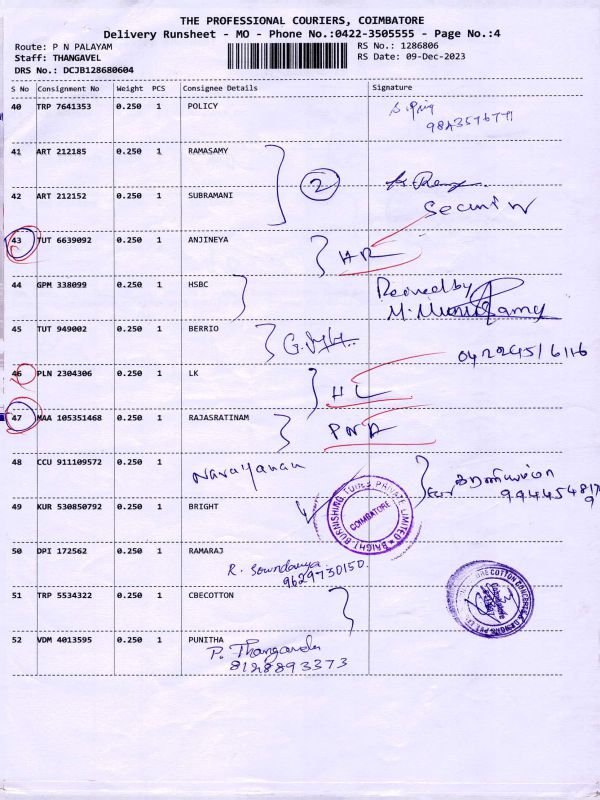 THE PROFESSIONAL COURIERS, COIMBATORE
Delivery Runsheet - MO - Phone No.:0422-3505555 - Page No.:4
Route: P N PALAYAM
RS No.: 1286806
Staff: THANGAVEL
RS Date: 09-Dec-2023
DRS No.: DCJB128680604
S No Consignment No Weight PCS Consignee Details Signature
40 TRP 7641353 0.250 1 POLICY
41 ART 212185 0.250 1 RAMASAMY
2
42 ART 212152 0.250 1 SUBRAMANI
43 TUT 6639092 0.250 1 ANJINEYA
44 GPM 338099 0.250 1 HSBC
Received by
45 TUT 949002 0.250 1 BERRIO
46 PLN 2304306 0.250 1 LK
HL
47 MAA 105351468 0.250 1 RAJASRATINAM
48 CCU 911109572 0.250 1
Narayanan
49 KUR 530850792 0.250 1 BRIGHT
BRIGHT BURNISHING TOOLS PRIVATE LIMITED
COIMBATORE
50 DPI 172562 0.250 1 RAMARAJ
R. Soundarya
9629730150.
51 TRP 5534322 0.250 1 CBECOTTON
52 VDM 4013595 0.250 1 PUNITHA
8128893373